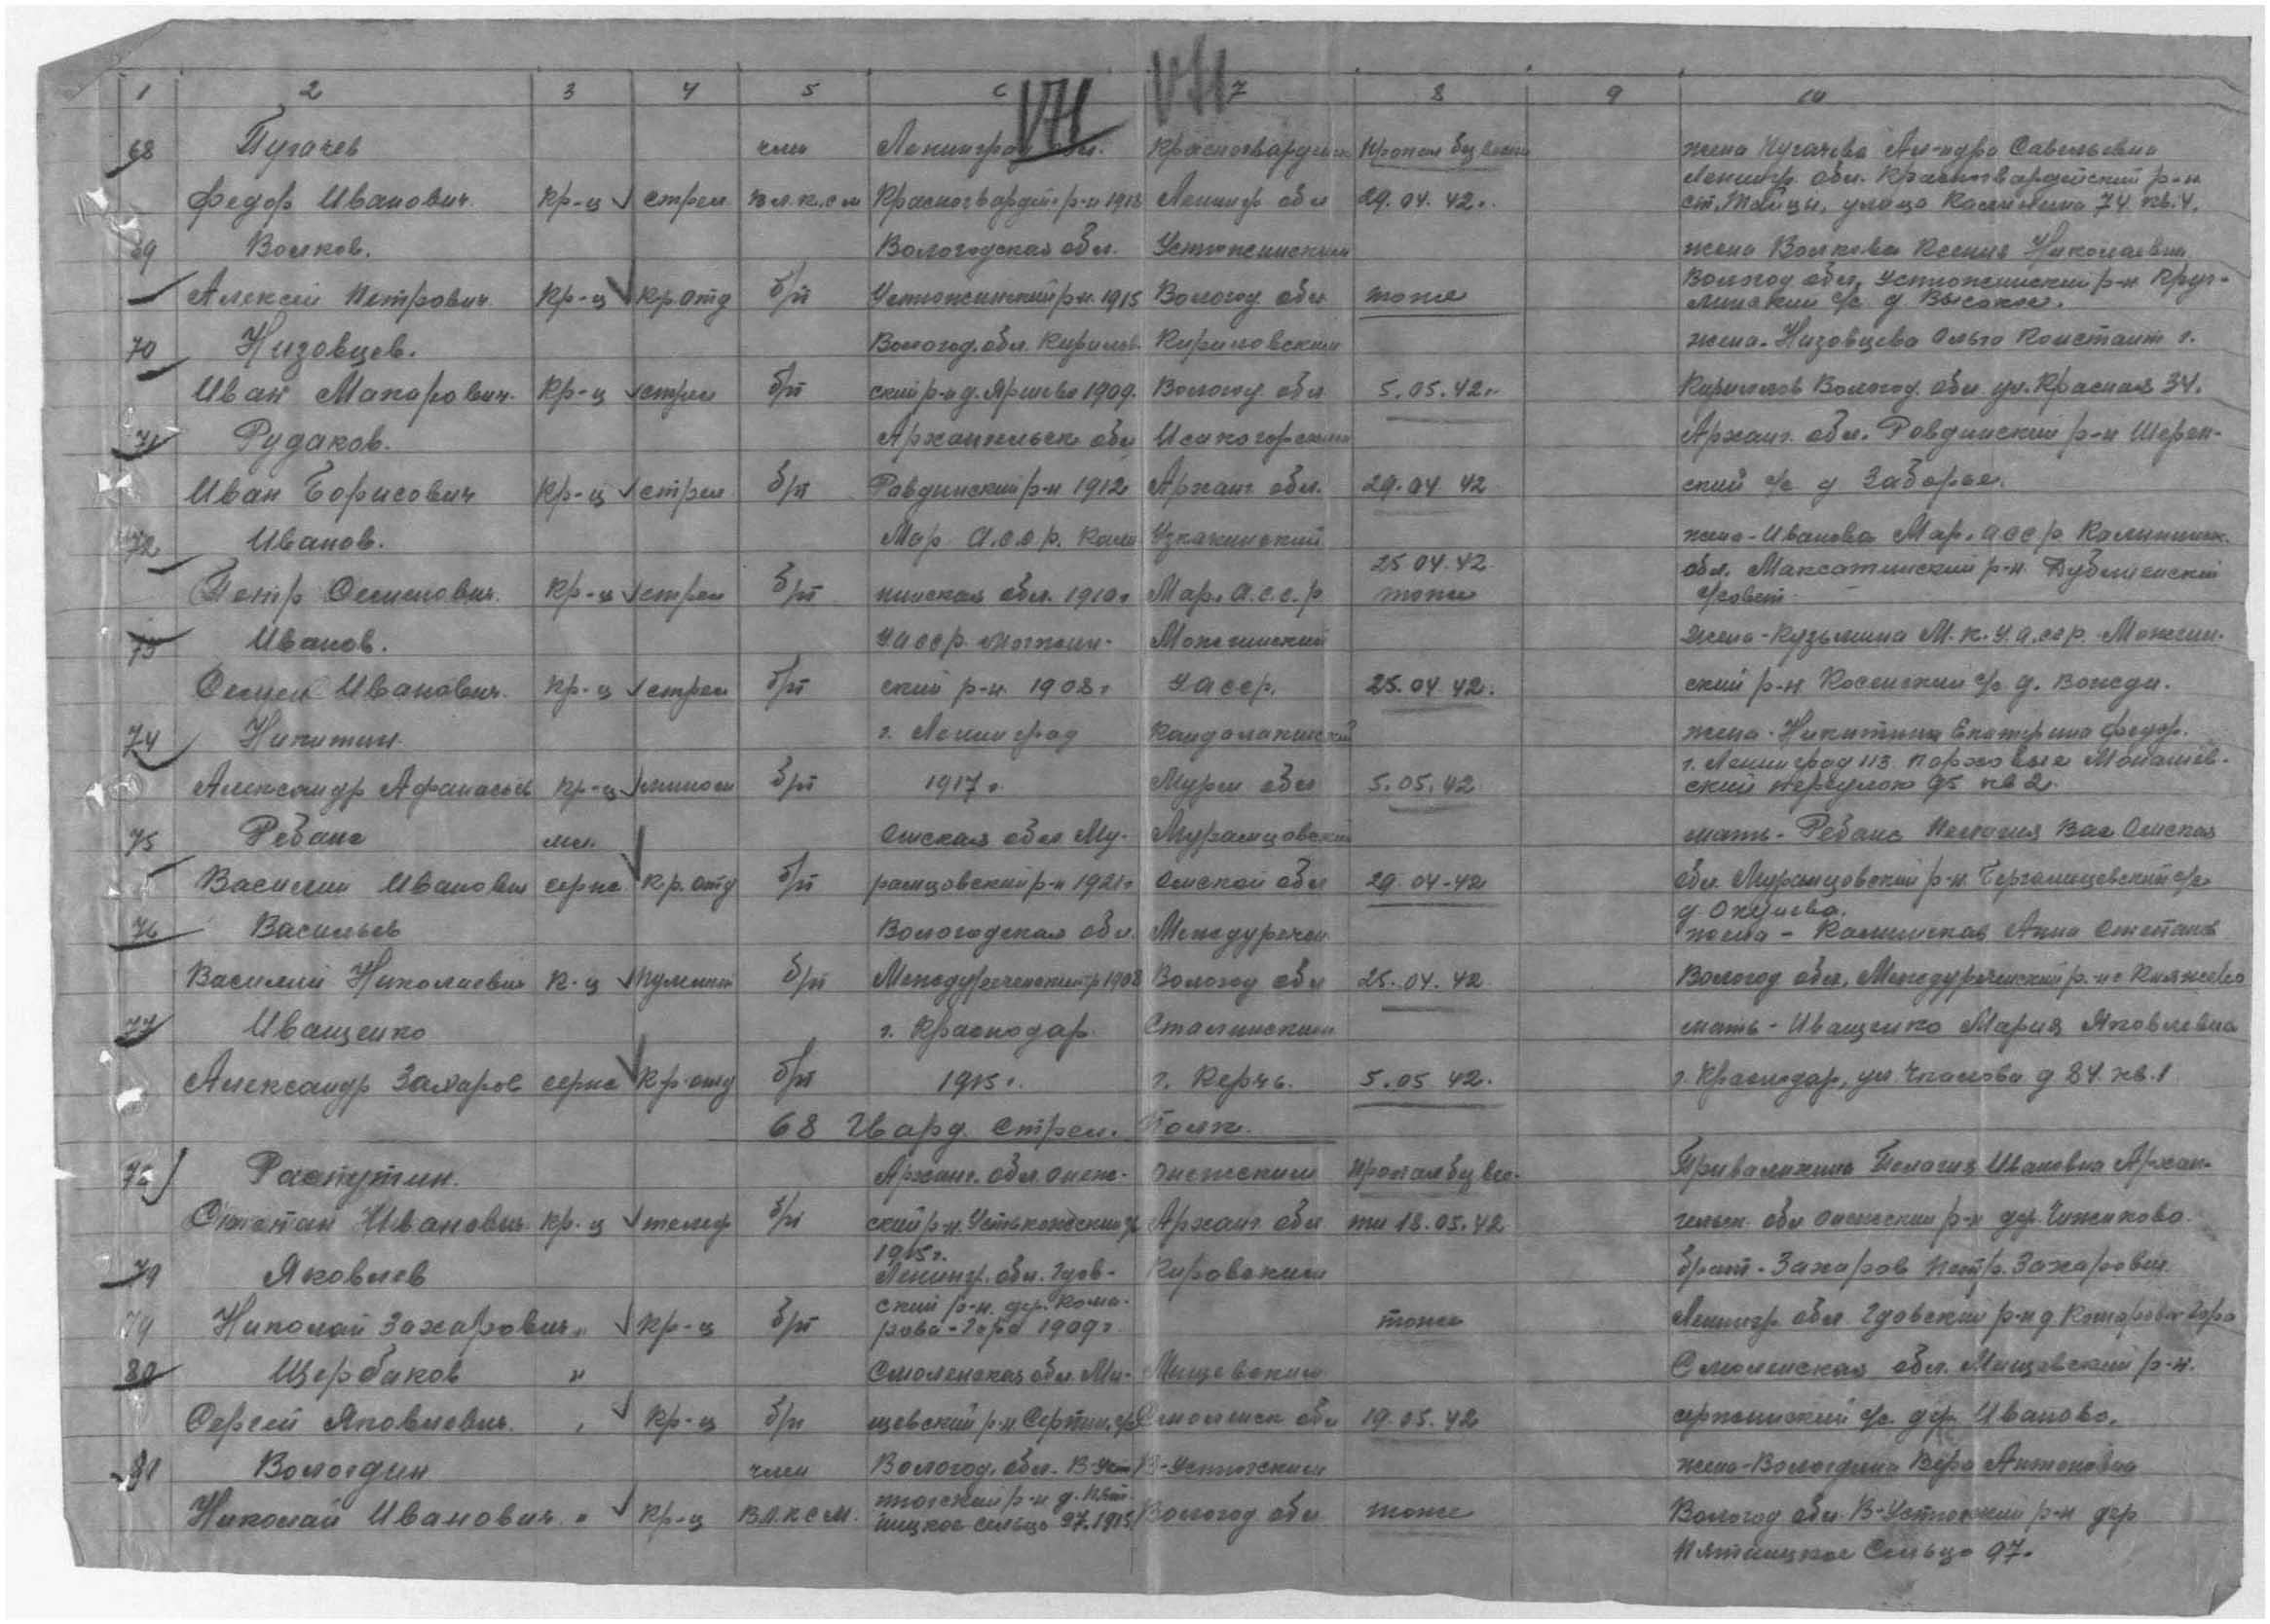 1 2 3 4 5 6 7 8 9 10
VII VII
68 Пугачев член Ленинград обл. Красногвардейск Пропал без вести жена Пугачева Ал-ндра Савельевна
Ленингр. обл. Красногвардейский р-н
Федор Иванович кр-ц стрел В.Л.К.С.М Красногвардей р-н 1918 Ленингр обл 29.04.42. ст. Тайцы, улица Калинина 74 кв. 4.
69 Волков. Вологодская обл. Устюженский жена Волкова Ксения Николаевна
Вологод обл, Устюженский р-н Круг-
Алексей Петрович кр-ц кр.отд б/п Устюженский р-н 1915 Вологод обл тоже линский с/с д Высокое.
70 Низовцев. Вологод. обл. Кирилов- Кириловский жена. Низовцева Ольга Констант г.
Иван Макарович кр-ц стрел б/п ский р-н д. 1909. Вологод обл 5.05.42г. Кириллов Вологод обл ул. Красная 34.
71 Рудаков. Архангельск обл Исакогорский Арханг. обл. Ровдинский р-н Шерен-
Иван Борисович кр-ц стрел б/п Ровдинский р-н 1912 Арханг обл. 29.04 42 ский с/с д Заборье.
72 Иванов. Мар А.С.С.Р. Кали жена-Иванова Мар. АССР Калининск.
25 04.42
обл. Максатинский р-н
Петр Семенович кр-ц стрел б/п нинская обл. 1910г Мар. А.С.С.Р тоже с/совет
73 Иванов. УАССР Можгин- Можгинский жена-Кузьмина М.К. У.А.ССР. Можгин-
Семен Иванович кр-ц стрел б/п ский р-н 1908г УАССР. 25.04.42. ский р-н с/с д.
74 Никитин г. Ленинград Кандалакшский жена-Никитина Екатерина Федор.
г. Ленинград 113
Александр Афанасьев кр-ц мином б/п 1917г. Мурм обл 5.05.42 ский переулок 95 кв 2.
75 Ребане мл. Омская обл Му- Муромцовский мать-Ребане Пелагия Вас Омская
Василий Иванович серж кр.отд б/п ромцовский р-н 1921г Омской обл 29.04-42 обл. Муромцовский р-н с/с
д. Окунева.
76 Васильев Вологодская обл. Междуречен жена - Анна Степанов
Василий Николаевич К-ц пулемет б/п Междуреченский р 1908 Вологод обл 25.04.42 Вологод обл, Междуреченский р-н с Княжево
77 Иващенко г. Краснодар Сталинский мать-Иващенко Мария Яковлевна
Александр Захаров серж Кр.отд б/п 1915г. г. Керчь. 5.05 42. г. Краснодар, ул Чкалова д 84 кв. 1
68 Гвард. Стрел. Полк.
78 Распутин. Арханг. обл. Онеж- Онежский Пропал без вес- Пелагия Ивановна Архан-
Степан Иванович кр-ц телеф б/п ский р-н. Арханг обл ти 18.05.42 гельск обл Онежский р-н дер. Чижиково.
1915г.
79 Яковлев Ленингр. обл. Гдов- Кировский брат-Захаров Петр. Захарович.
ский р-н. дер. Кома-
79 Николай Захарович " кр-ц б/п рова-Гора 1909г тоже Ленингр обл Гдовский р-н д Комарова Гора
80 Щербаков " Смоленская обл. Ме- Мещевский Смоленская обл. Мещевский р-н.
Сергей Яковлевич " кр-ц б/п щевский р-н Смоленск обл 19.05.42 с/с дер. Иваново.
81 Вологдин член Вологод. обл. В-Уст В-Устюжский жена-Вологдина Вера Антоновна
южский р-н д. Пят-
Николай Иванович " кр-ц В.Л.К.С.М. ницкое сельцо 97. 1915 Вологод обл тоже Вологод обл В-Устюжский р-н дер
Пятницкое Сельцо 97.